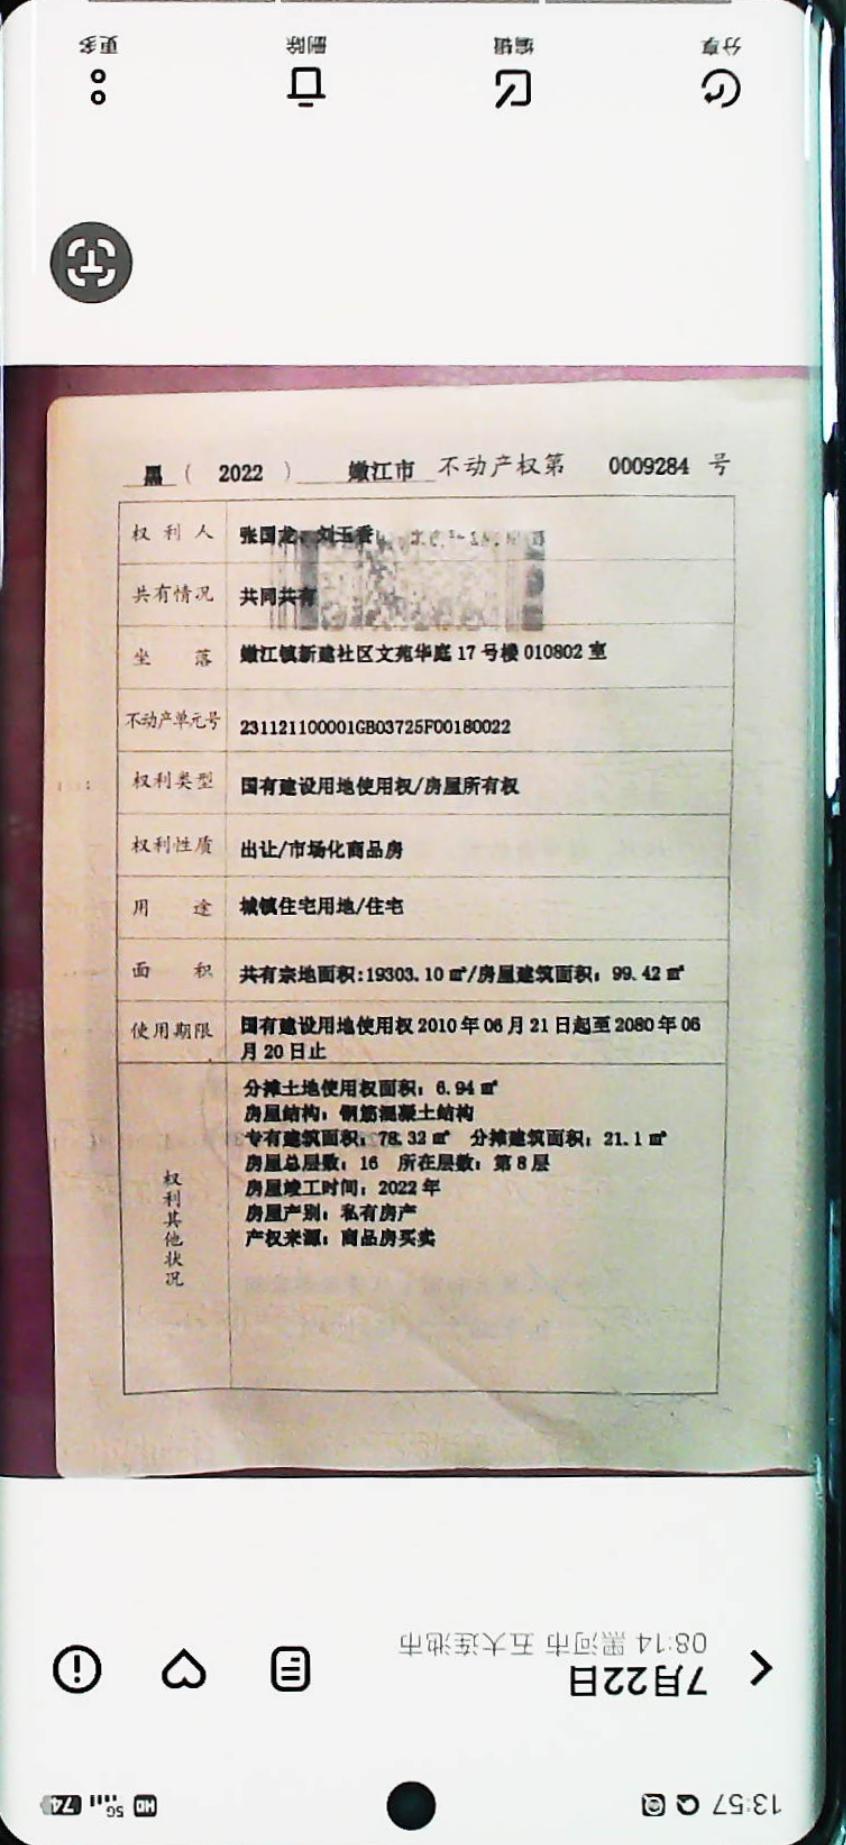 更多 删除 编辑 分享
黑 ( 2022 ) 嫩江市 不动产权第 0009284 号
权利人 张国龙、刘玉香
共有情况 共同共有
坐落 嫩江镇新建社区文苑华庭 17 号楼 010802 室
不动产单元号 231121100001GB03725F00180022
权利类型 国有建设用地使用权/房屋所有权
权利性质 出让/市场化商品房
用途 城镇住宅用地/住宅
面积 共有宗地面积:19303.10 ㎡/房屋建筑面积：99.42 ㎡
使用期限 国有建设用地使用权 2010 年 06 月 21 日起至 2080 年 06
月 20 日止
权利其他状况
分摊土地使用权面积：6.94 ㎡
房屋结构：钢筋混凝土结构
专有建筑面积：78.32 ㎡ 分摊建筑面积：21.1 ㎡
房屋总层数：16 所在层数：第 8 层
房屋竣工时间：2022 年
房屋产别：私有房产
产权来源：商品房买卖
08:14 黑河市 五大连池市
7月22日
13:57 HD 5G 74